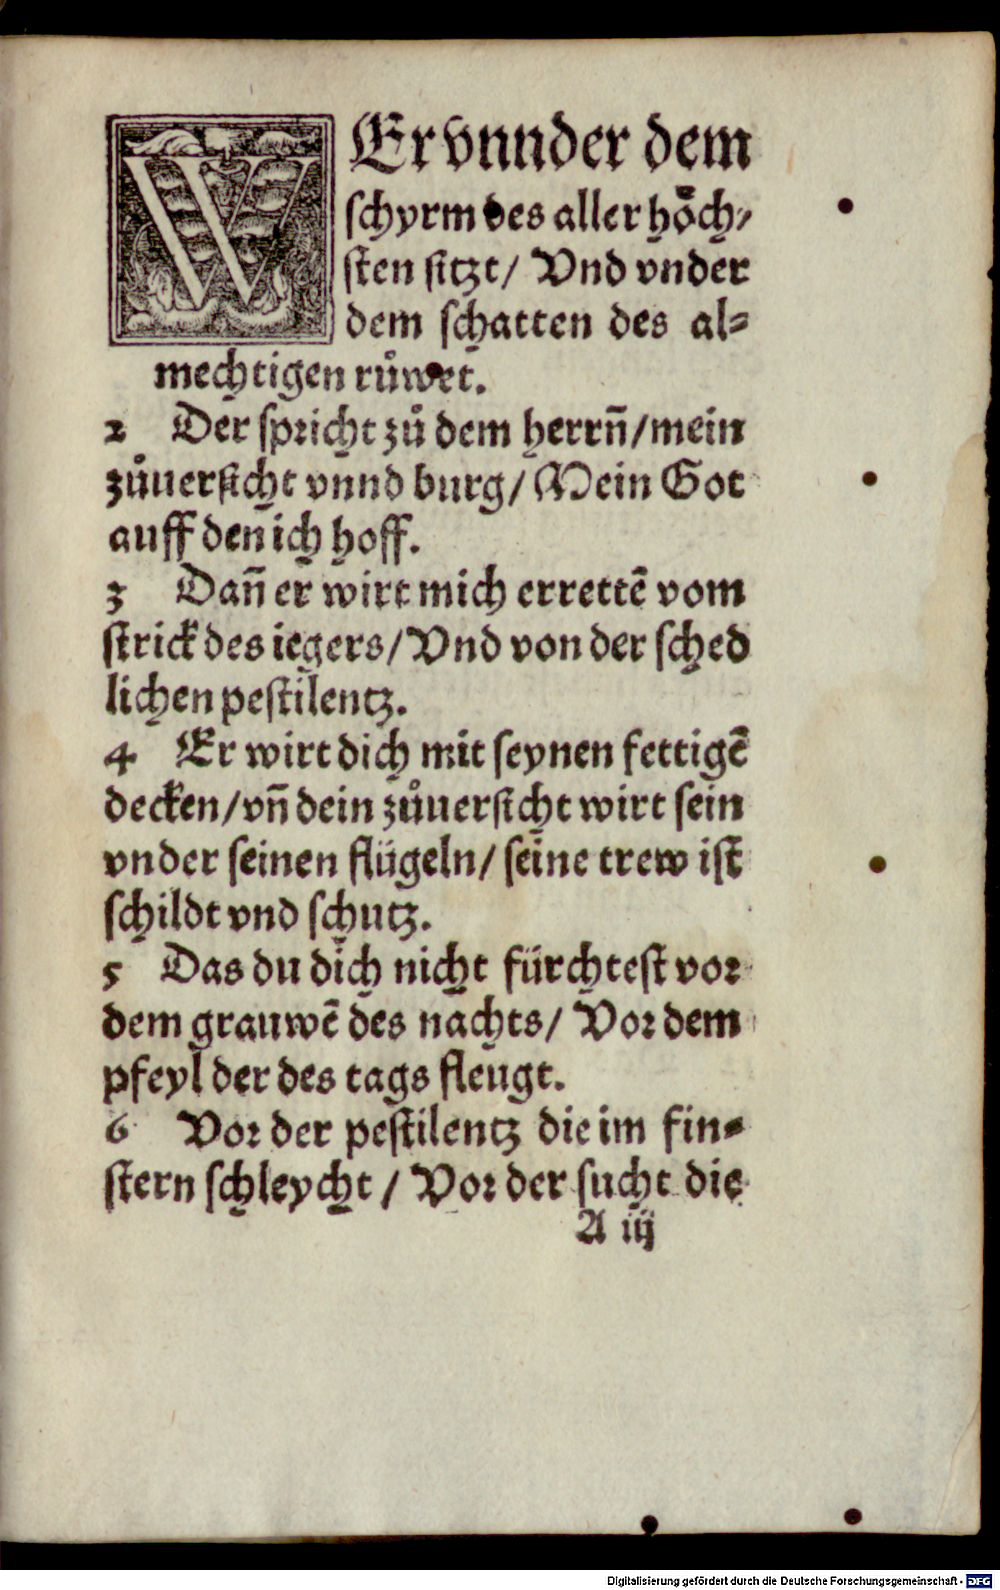 WEr vnnder dem
schyrm des aller hoͤch⸗
sten sitzt/ Vnd vnder
dem schatten des al⸗
mechtigen ruͦwet.
2 Der spricht zuͦ dem herrn̄/mein
zuͦuersicht vnnd burg/ Mein Got
auff den ich hoff.
3 Dan̄ er wirt mich errettē vom
strick des iegers/Vnd von der sched
lichen pestilentz.
4 Er wirt dich mit seynen fettigē
decken/vn̄ dein zuͦuersicht wirt sein
vnder seinen flügeln/ seine trew ist
schildt vnd schutz.
5 Das du dich nicht fürchtest vor
dem grauwē des nachts/ Vor dem
pfeyl der des tags fleugt.
6 Vor der pestilentz die im fin⸗
stern schleycht / Vor der sucht die
A iij
Digitalisierung gefördert durch die Deutsche Forschungsgemeinschaft - DFG